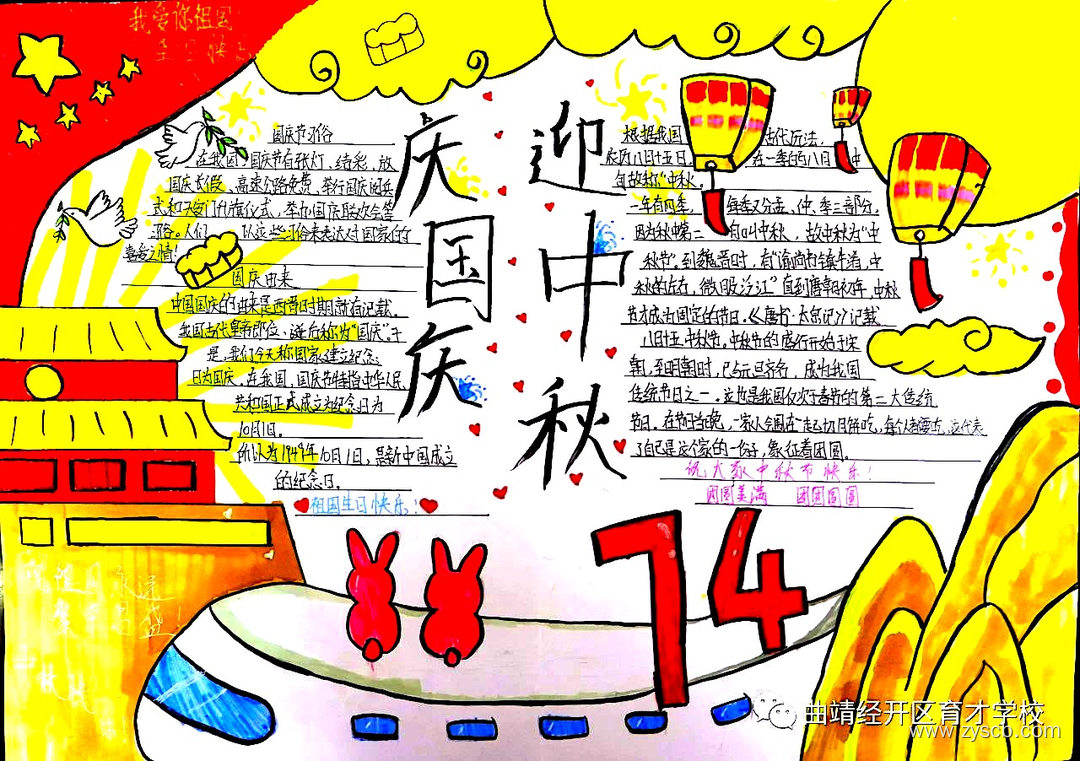 我爱你祖国
生日快乐
庆国庆
迎中秋
国庆节习俗
在我国,国庆节有张灯、结彩,放
国庆长假,高速公路免费、举行国庆阅兵
式和天安门升旗仪式,举办国庆联欢会等
习俗。人们 以这些习俗来表达对国家的
喜爱之情!
国庆由来
中国国庆的由来是西晋时期就有记载。
我国古代皇帝即位、诞辰称为“国庆”。于
是,我们今天称国家建立纪念
日为国庆,在我国,国庆节特指中华人民
共和国正式成立为纪念日为
10月1日。
所以为1949年10月1日,是新中国成立
的纪念日。
祖国生日快乐!
根据我国 古代历法,
农历八月十五日 在一季的八月 中
旬故称“中秋。
一年有四季, 每季又分孟、仲、季三部分,
因为秋第二 月叫中秋,故中秋为“中
秋节”。到魏晋时,有“谕尚书镇牛渚,中
秋 微服泛江”直到唐朝初年,中秋
节才成为固定的节日。《唐书·太宗记》记载
八月十五中秋节。中秋节的盛行开始于宋
朝,至明朝时,已与元旦齐名,成为我国
传统节日之一。这也是我国仅次于春节的第二大传统
节日。 一家人会围在一起切月饼吃,每个人都要吃,这代表
了自己是这个家的一份子,象征着团圆。
祝大家中秋节快乐!
团团圆圆
74
曲靖经开区育才学校
www.zysco.com